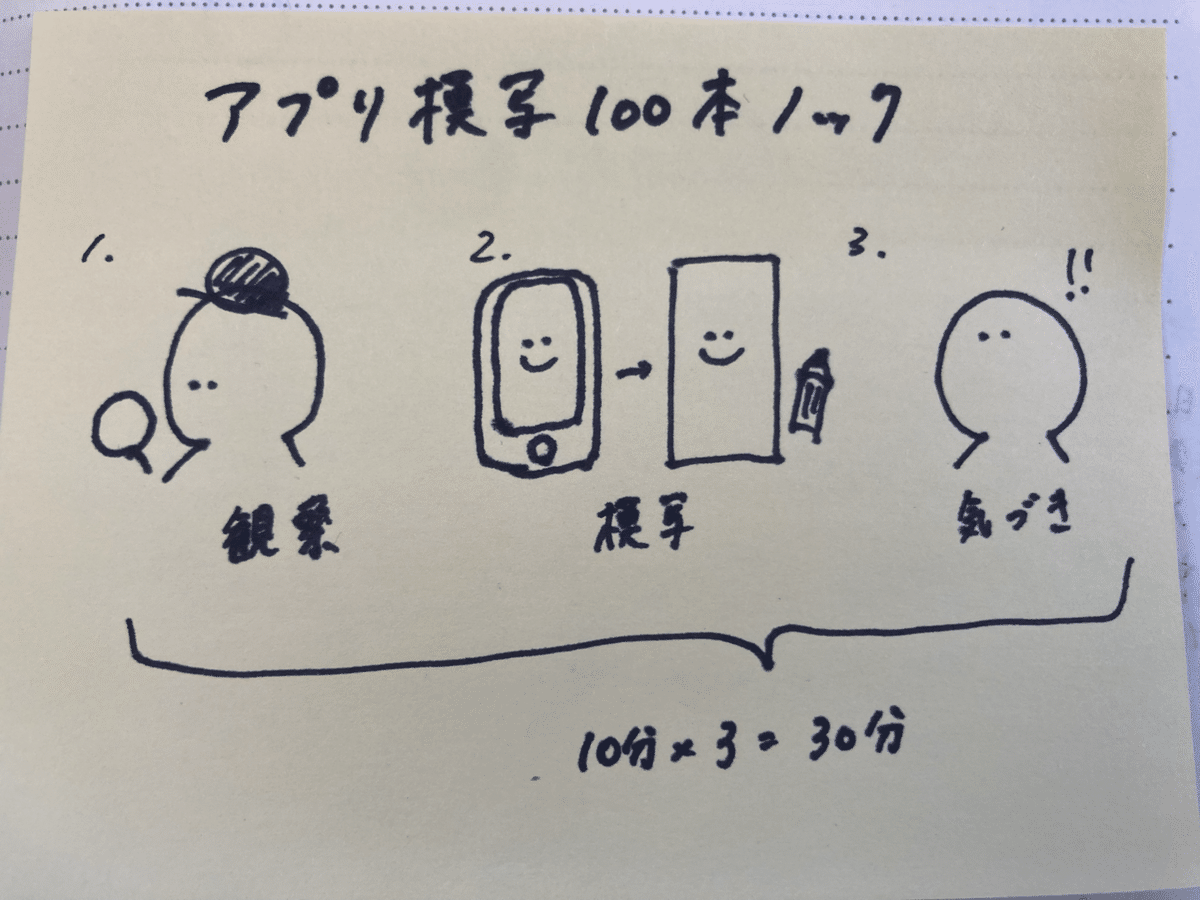 アプリ模写100本ノック
1.
2.
3.
!!
観察
模写
気づき
10分×3=30分